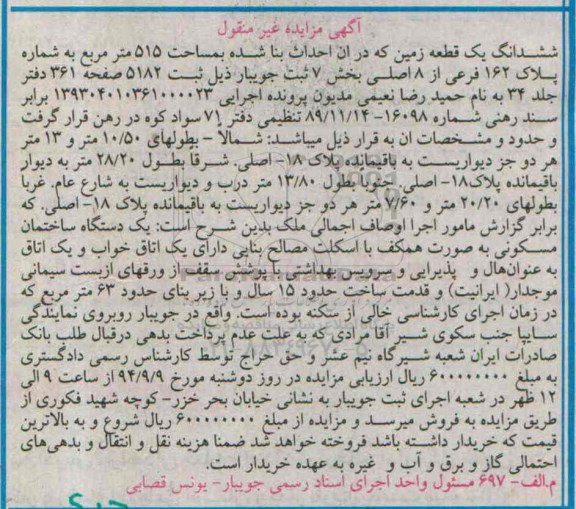 آگهی مزایده غیر منقول
ششدانگ یک قطعه زمین که در ان احداث بنا شده بمساحت ۵۱۵ متر مربع به شماره
پلاک ۱۶۲ فرعی از ۸ اصلی بخش ۷ ثبت جویبار ذیل ثبت ۵۱۸۲ صفحه ۳۶۱ دفتر
جلد ۳۴ به نام حمید رضا نعیمی مدیون پرونده اجرایی ۱۳۹۳۰۴۰۱۰۳۶۱۰۰۰۰۲۳ برابر
سند رهنی شماره ۱۶۰۹۸- ۸۹/۱۱/۱۴ تنظیمی دفتر ۷۱ سواد کوه در رهن قرار گرفت
و حدود و مشخصات ان به قرار ذیل میباشد: شمالاً – بطولهای ۱۰/۵۰ متر و ۱۳ متر
هر دو جز دیواریست به باقیمانده پلاک ۱۸- اصلی. شرقا بطول ۲۸/۲۰ متر به دیوار
باقیمانده پلاک۱۸- اصلی. جنوبا بطول ۱۳/۸۰ متر درب و دیواریست به شارع عام. غربا
بطولهای ۲۰/۲۰ متر و ۷/۶۰ متر هر دو جز دیواریست به باقیمانده پلاک ۱۸- اصلی. که
برابر گزارش مامور اجرا اوصاف اجمالی ملک بدین شرح است: یک دستگاه ساختمان
مسکونی به صورت همکف با اسکلت مصالح بنایی دارای یک اتاق خواب و یک اتاق
به عنوان‌هال و پذیرایی و سرویس بهداشتی با پوشش سقف از ورقهای ازبست سیمانی
موجدار( ایرانیت) و قدمت ساخت حدود ۱۵ سال و با زیر بنای حدود ۶۳ متر مربع که
در زمان اجرای کارشناسی خالی از سکنه بوده است. واقع در جویبار روبروی نمایندگی
سایپا جنب سکوی شیر آقا مرادی، که به علت عدم پرداخت بدهی درقبال طلب بانک
صادرات ایران شعبه شیرگاه نیم عشر و حق حراج توسط کارشناس رسمی دادگستری
به مبلغ ۶۰۰۰۰۰۰۰۰ ریال ارزیابی مزایده در روز دوشنبه مورخ ۹۴/۹/۹ از ساعت ۹ الی
۱۲ ظهر در شعبه اجرای ثبت جویبار به نشانی خیابان بحر خزر- کوچه شهید فکوری از
طریق مزایده به فروش میرسد و مزایده از مبلغ ۶۰۰۰۰۰۰۰۰ ریال شروع و به بالاترین
قیمت که خریدار داشته باشد فروخته خواهد شد ضمنا هزینه نقل و انتقال و بدهی‌های
احتمالی گاز و برق و آب و غیره به عهده خریدار است.
م.الف- ۶۹۷ مسئول واحد اجرای اسناد رسمی جویبار- یونس قصابی